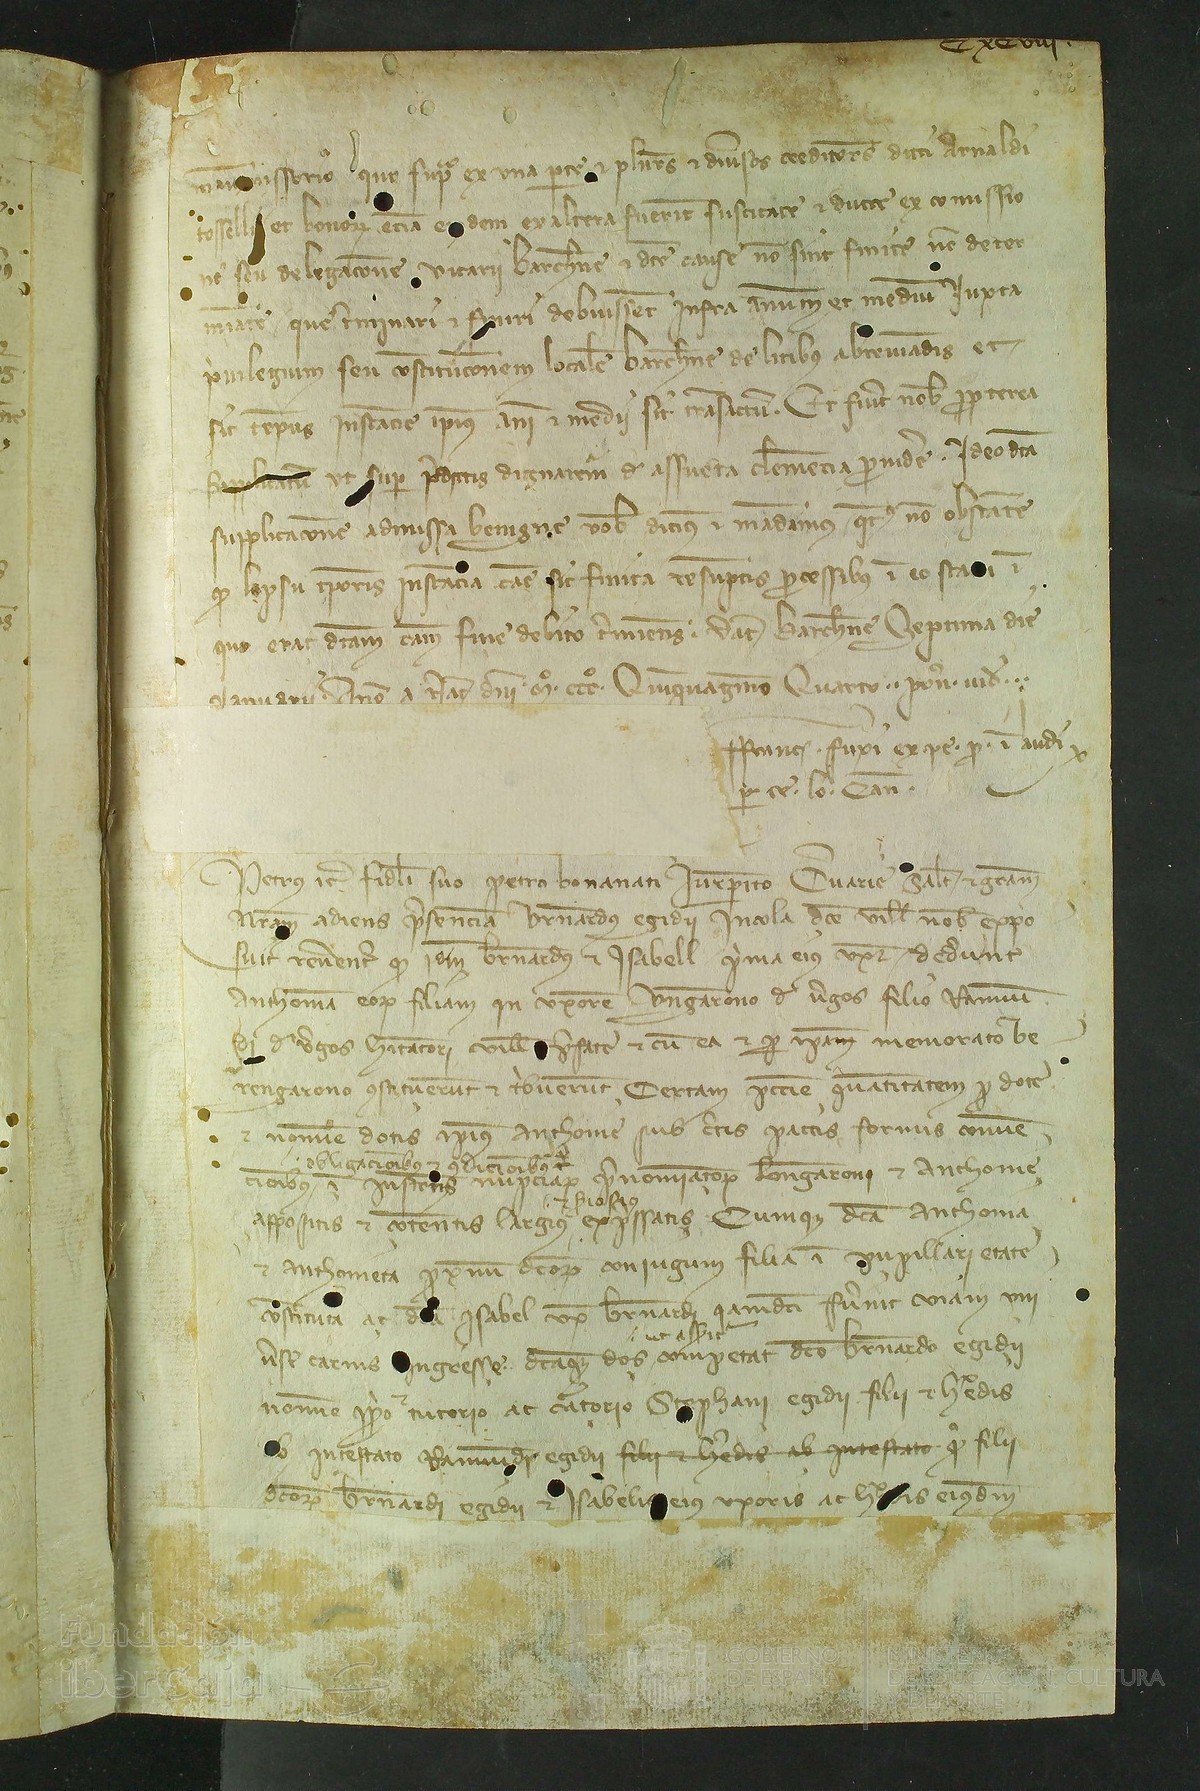 CxCviii.
manumissorio que supra ex una parte et plures et diversos creditores dicti Arnaldi
tosselli et bonorum etiam eodem ex altera fuerint suscitate et ducte ex comissio
ne seu delegacione vicarii barchinone et dicte cause non sint finite nec deter
minate que terminari et finiri debuissent infra annum et medium Iuxta
privilegium seu constitucionem localem barchinone de litibus abreviandis et
sic tempus instancie ipsius anni et medii sit transactum. Et fuerit nobis propterea
supplicatum ut super predictis dignaremur de assueta clemencia providere. Ideo dicta
supplicacione admissa benigne vobis dicimus et mandamus quatenus non obstante
quod lapsu temporis instancia cause sit finita resumptis processibus in eo statu in
quo erat dictam causam fine debito terminetis. Dat barchinone Septima die
Ianuarii. Anno a nat dni Mº. CCCº. Quinquagesimo Quarto.
ffranc. ex pe. p. i audi
per ce. lo. Can.
Petrus etc fideli suo petro bonanati Iurisperito Cervarie Salutem et graciam
Nostram adiens presencia bernardus egidii Incola dicte ville nobis expo
suit reverenter quod idem bernardus et Isabell prima eius uxor dederunt
Anthoniam eorum filiam in uxorem berengarono de vergos filio Ramun
di de vergos habitatori ville prefate et cum ea et per ipsam memorato be
rengarono constituerunt et Certam peccunie quantitatem pro dote
et nomine dotis ipsius Anthonie sub certis pactis formis conven
obligacionibus et condicionibus
cionibus in Instrumentis nupcialibus prenominatorum berengaroni et Anthonie
appositis et contentis largius expressatis. Cumque dicta Anthonia
et Anthoneta dictorum coniugum filia in pupillari etate
constituta ac dicta Isabel uxor bernardi quamdicti fuerint viam uni
ut asserit
verse carnis ingresse. dictaque dos competat dicto bernardo egidii
nomine proprio tutorio ac curatorio Stephani egidii filii et heredis
ab intestato Ramundi egidii filii et heredis ab intestato filii
dictorum bernardi egidii et Isabelis eius uxoris ac heredis eiusdem
Fundación
iberCaja
GOBIERNO
DE ESPAÑA
MINISTERIO
DE EDUCACIÓN, CULTURA
Y DEPORTE